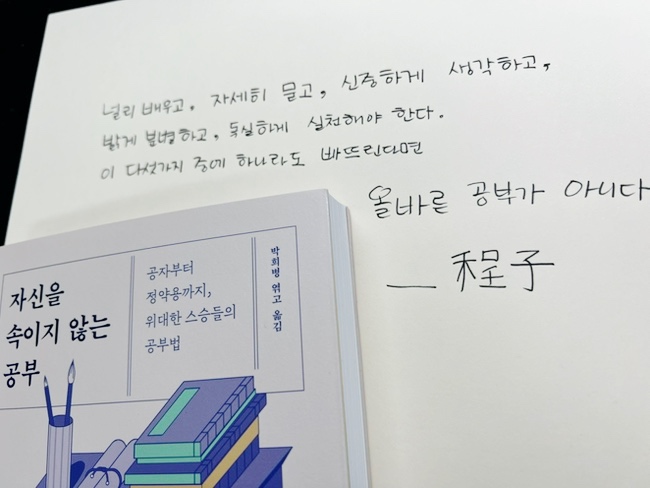 널리 배우고, 자세히 묻고, 신중하게 생각하고,
밝게 분별하고, 독실하게 실천해야 한다.
이 다섯가지 중에 하나라도 빠뜨린다면
올바른 공부가 아니다
— 程子
자신을
속이지 않는
공부
공자부터
정약용까지,
위대한 스승들의
공부법
박희병 엮고 옮김